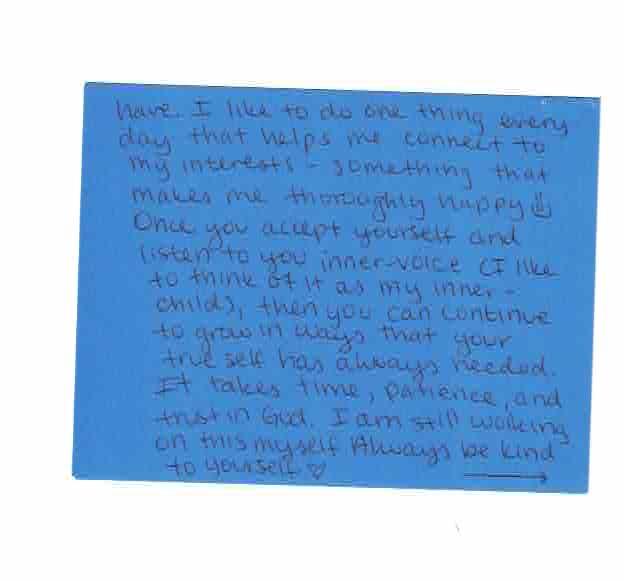 have. I like to do one thing every
day that helps me connect to
my interests - something that
makes me thoroughly happy
Once you accept yourself and
listen to you inner-voice (I like
to think of it as my inner-
child), then you can continue
to grow in ways that your
true self has always needed.
It takes time, patience, and
trust in God. I am still working
on this myself. Always be kind
to yourself ♡